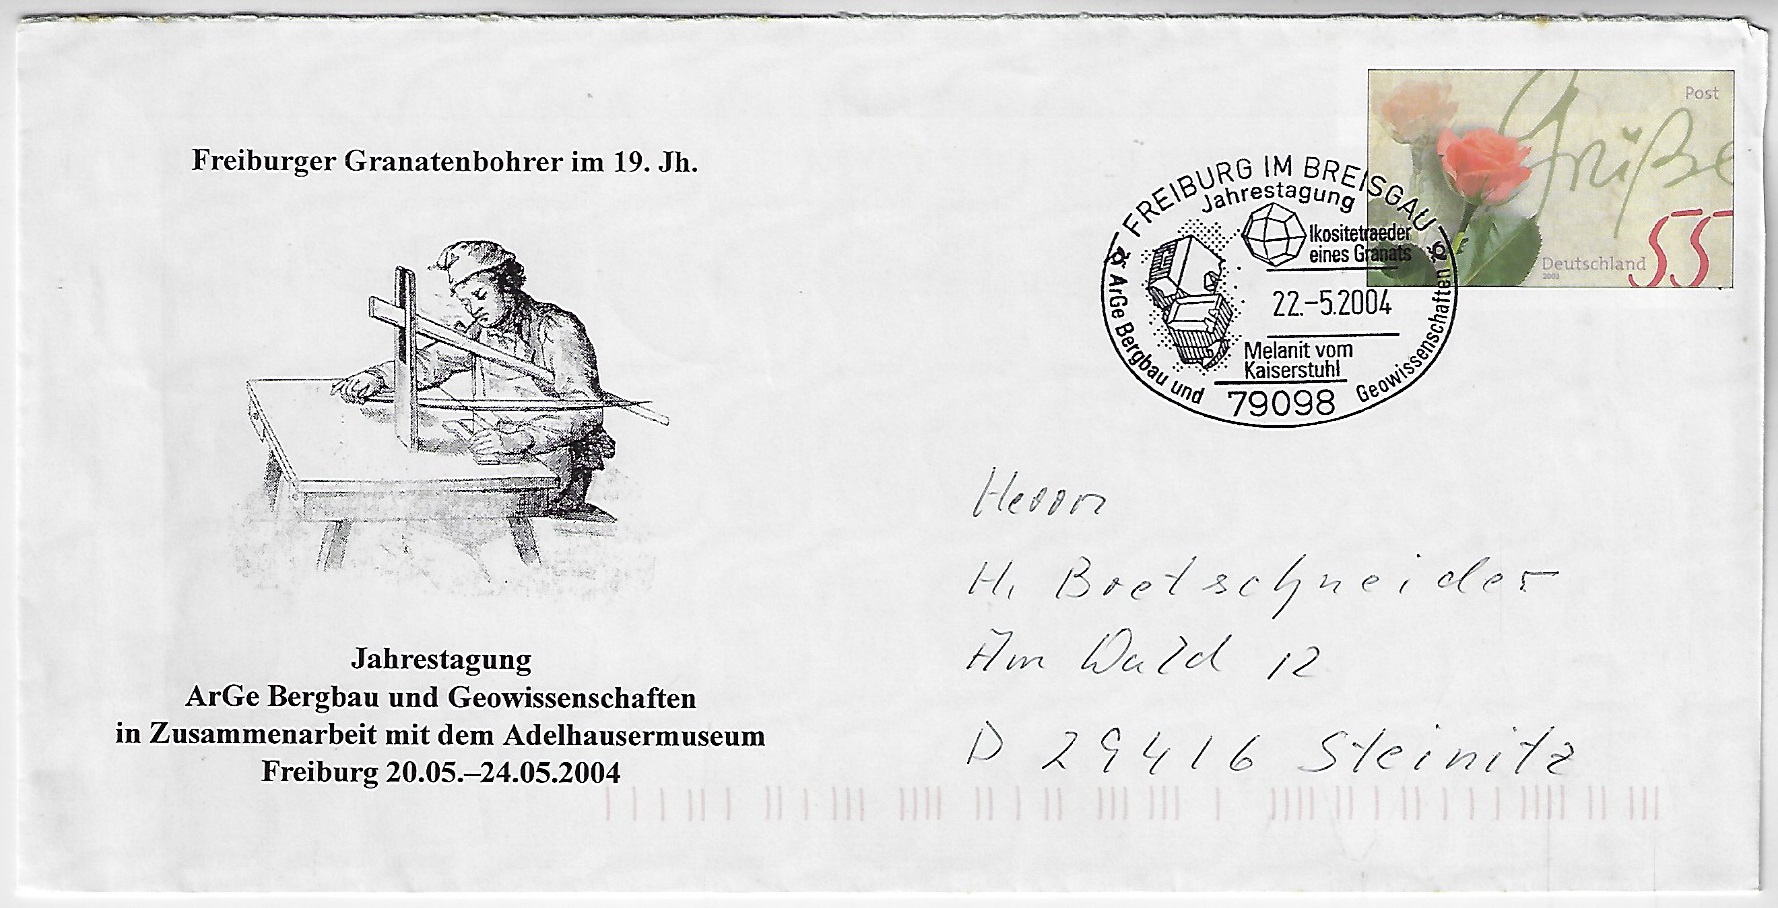 Freiburger Granatenbohrer im 19. Jh.
Jahrestagung
ArGe Bergbau und Geowissenschaften
in Zusammenarbeit mit dem Adelhausermuseum
Freiburg 20.05.–24.05.2004
Post
Grüße
Deutschland
55
2003
FREIBURG IM BREISGAU
Jahrestagung
Ikositetraeder
eines Granats
22.-5.2004
Melanit vom
Kaiserstuhl
79098
ArGe Bergbau und Geowissenschaften
Herrn
H. Bretschneider
Am Wald 12
D 29416 Steinitz